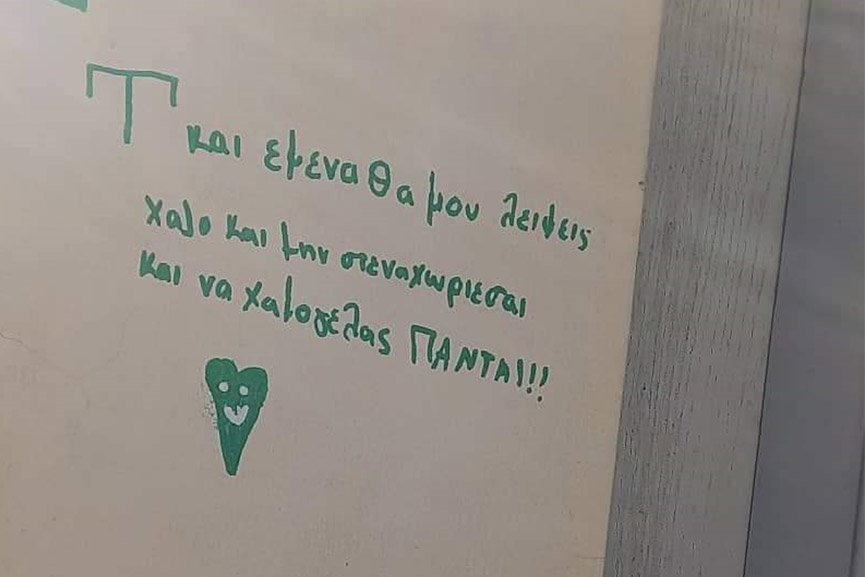 Τ και εμενα θα μου λειψεις
χαζο και μην στεναχωριεσαι
και να χαμογελας ΠΑΝΤΑ!!!